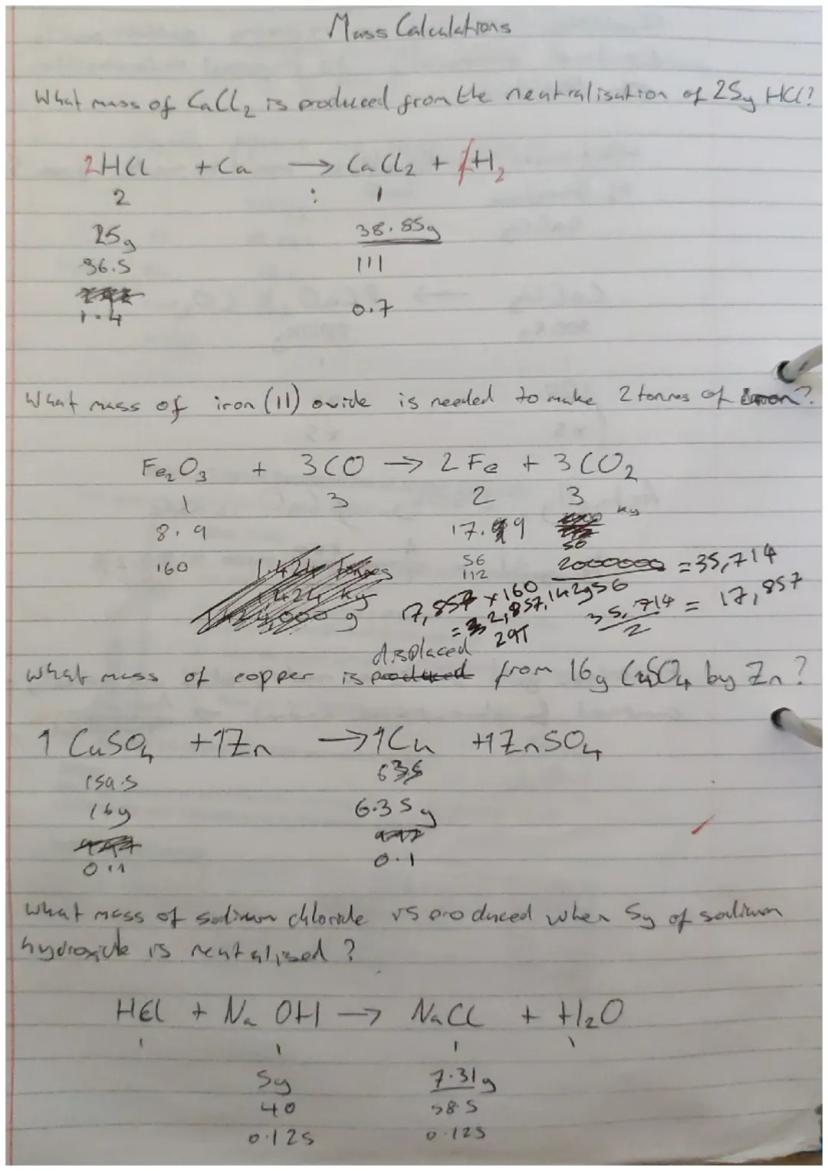 Mass Calculations
What mass of CaCl2 is produced from the neutralisation of 25g HCl?
2HCl + Ca → CaCl2 + H2
2 : 1
25g 38.85g
36.5 111
1.4 0.7
What mass of iron (11) oxide is needed to make 2 tonnes of iron?
Fe2O3 + 3CO → 2Fe + 3CO2
1 3 2 3
8.9 17.9 kg
160 56 2000000 = 35,714
112 56
17,857 × 160 35,714 = 17,857
= 2,857,142g 2
29T
displaced
What mass of copper is from 16g CuSO4 by Zn?
1 CuSO4 + 1Zn → 1Cu + 1ZnSO4
159.5 635
16g 6.35g
0.1 0.1
What mass of sodium chloride is produced when 5g of sodium
hydroxide is neutralised?
HCl + NaOH → NaCl + H2O
1 1 1 1
5g 7.31g
40 58.5
0.125 0.125